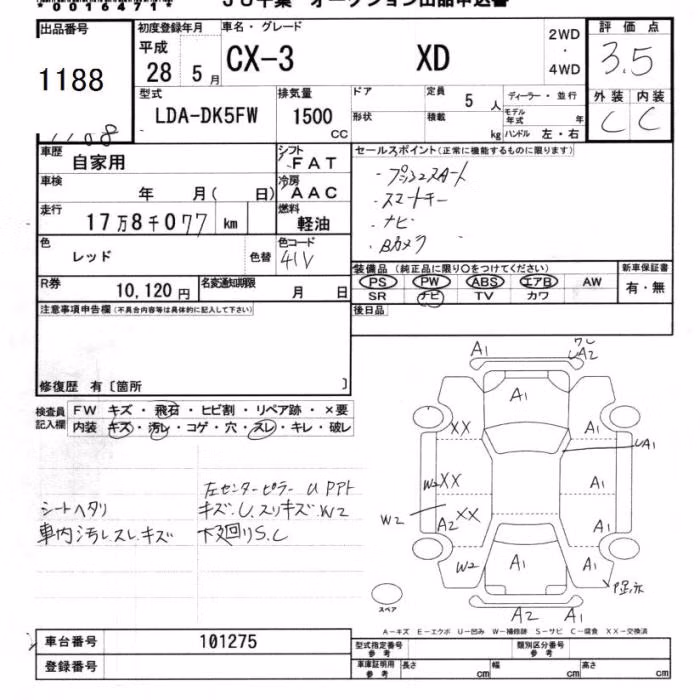 00164717 JU千葉 オークション出品申込書
出品番号 初度登録年月 車名・グレード 評価点
1188 平成 28 5月 CX-3 XD 2WD・4WD 3.5
1108
型式 排気量 ドア 定員 5人 ディーラー・並行 外装 内装
LDA-DK5FW 1500 CC 形状 積載 kg モデル年式 年 C C
ハンドル 左・右
車歴 自家用 シフト FAT セールスポイント(正常に機能するものに限ります)
車検 年 月( 日) 冷房 AAC ・プッシュスタート
走行 17万8千077 km 燃料 軽油 ・スマートキー
・ナビ
・Bカメラ
色 レッド 色替 色コード 41V
装備品 (純正品に限り○をつけてください) 新車保証書
PS PW ABS エアB AW 有・無
SR ナビ TV カワ
R券 10,120円 名変通知期限 月 日
後日品
注意事項申告欄(不具合内容等は具体的に記入して下さい)
修復歴 有〔箇所 〕
検査員記入欄 FW キズ・飛石・ヒビ割・リペア跡・×要
内装 キズ・汚レ・コゲ・穴・スレ・キレ・破レ
左センターピラー U PアT
シートヘタリ キズ.U.スリキズ.W2
車内汚レスレ.キズ 下廻りS.C
A1 ワレ UA2
A1
XX UA1
W2 XX A1
W2 A2 XX A1
W2 A1 A1
A2 A1
スペア
A−キズ E−エクボ U−凹み W−補修跡 S−サビ C−腐食 XX−交換済
車台番号 101275 型式指定番号 参考 類別区分番号 参考
登録番号 車庫証明用 参考 長さ cm 幅 cm 高さ cm